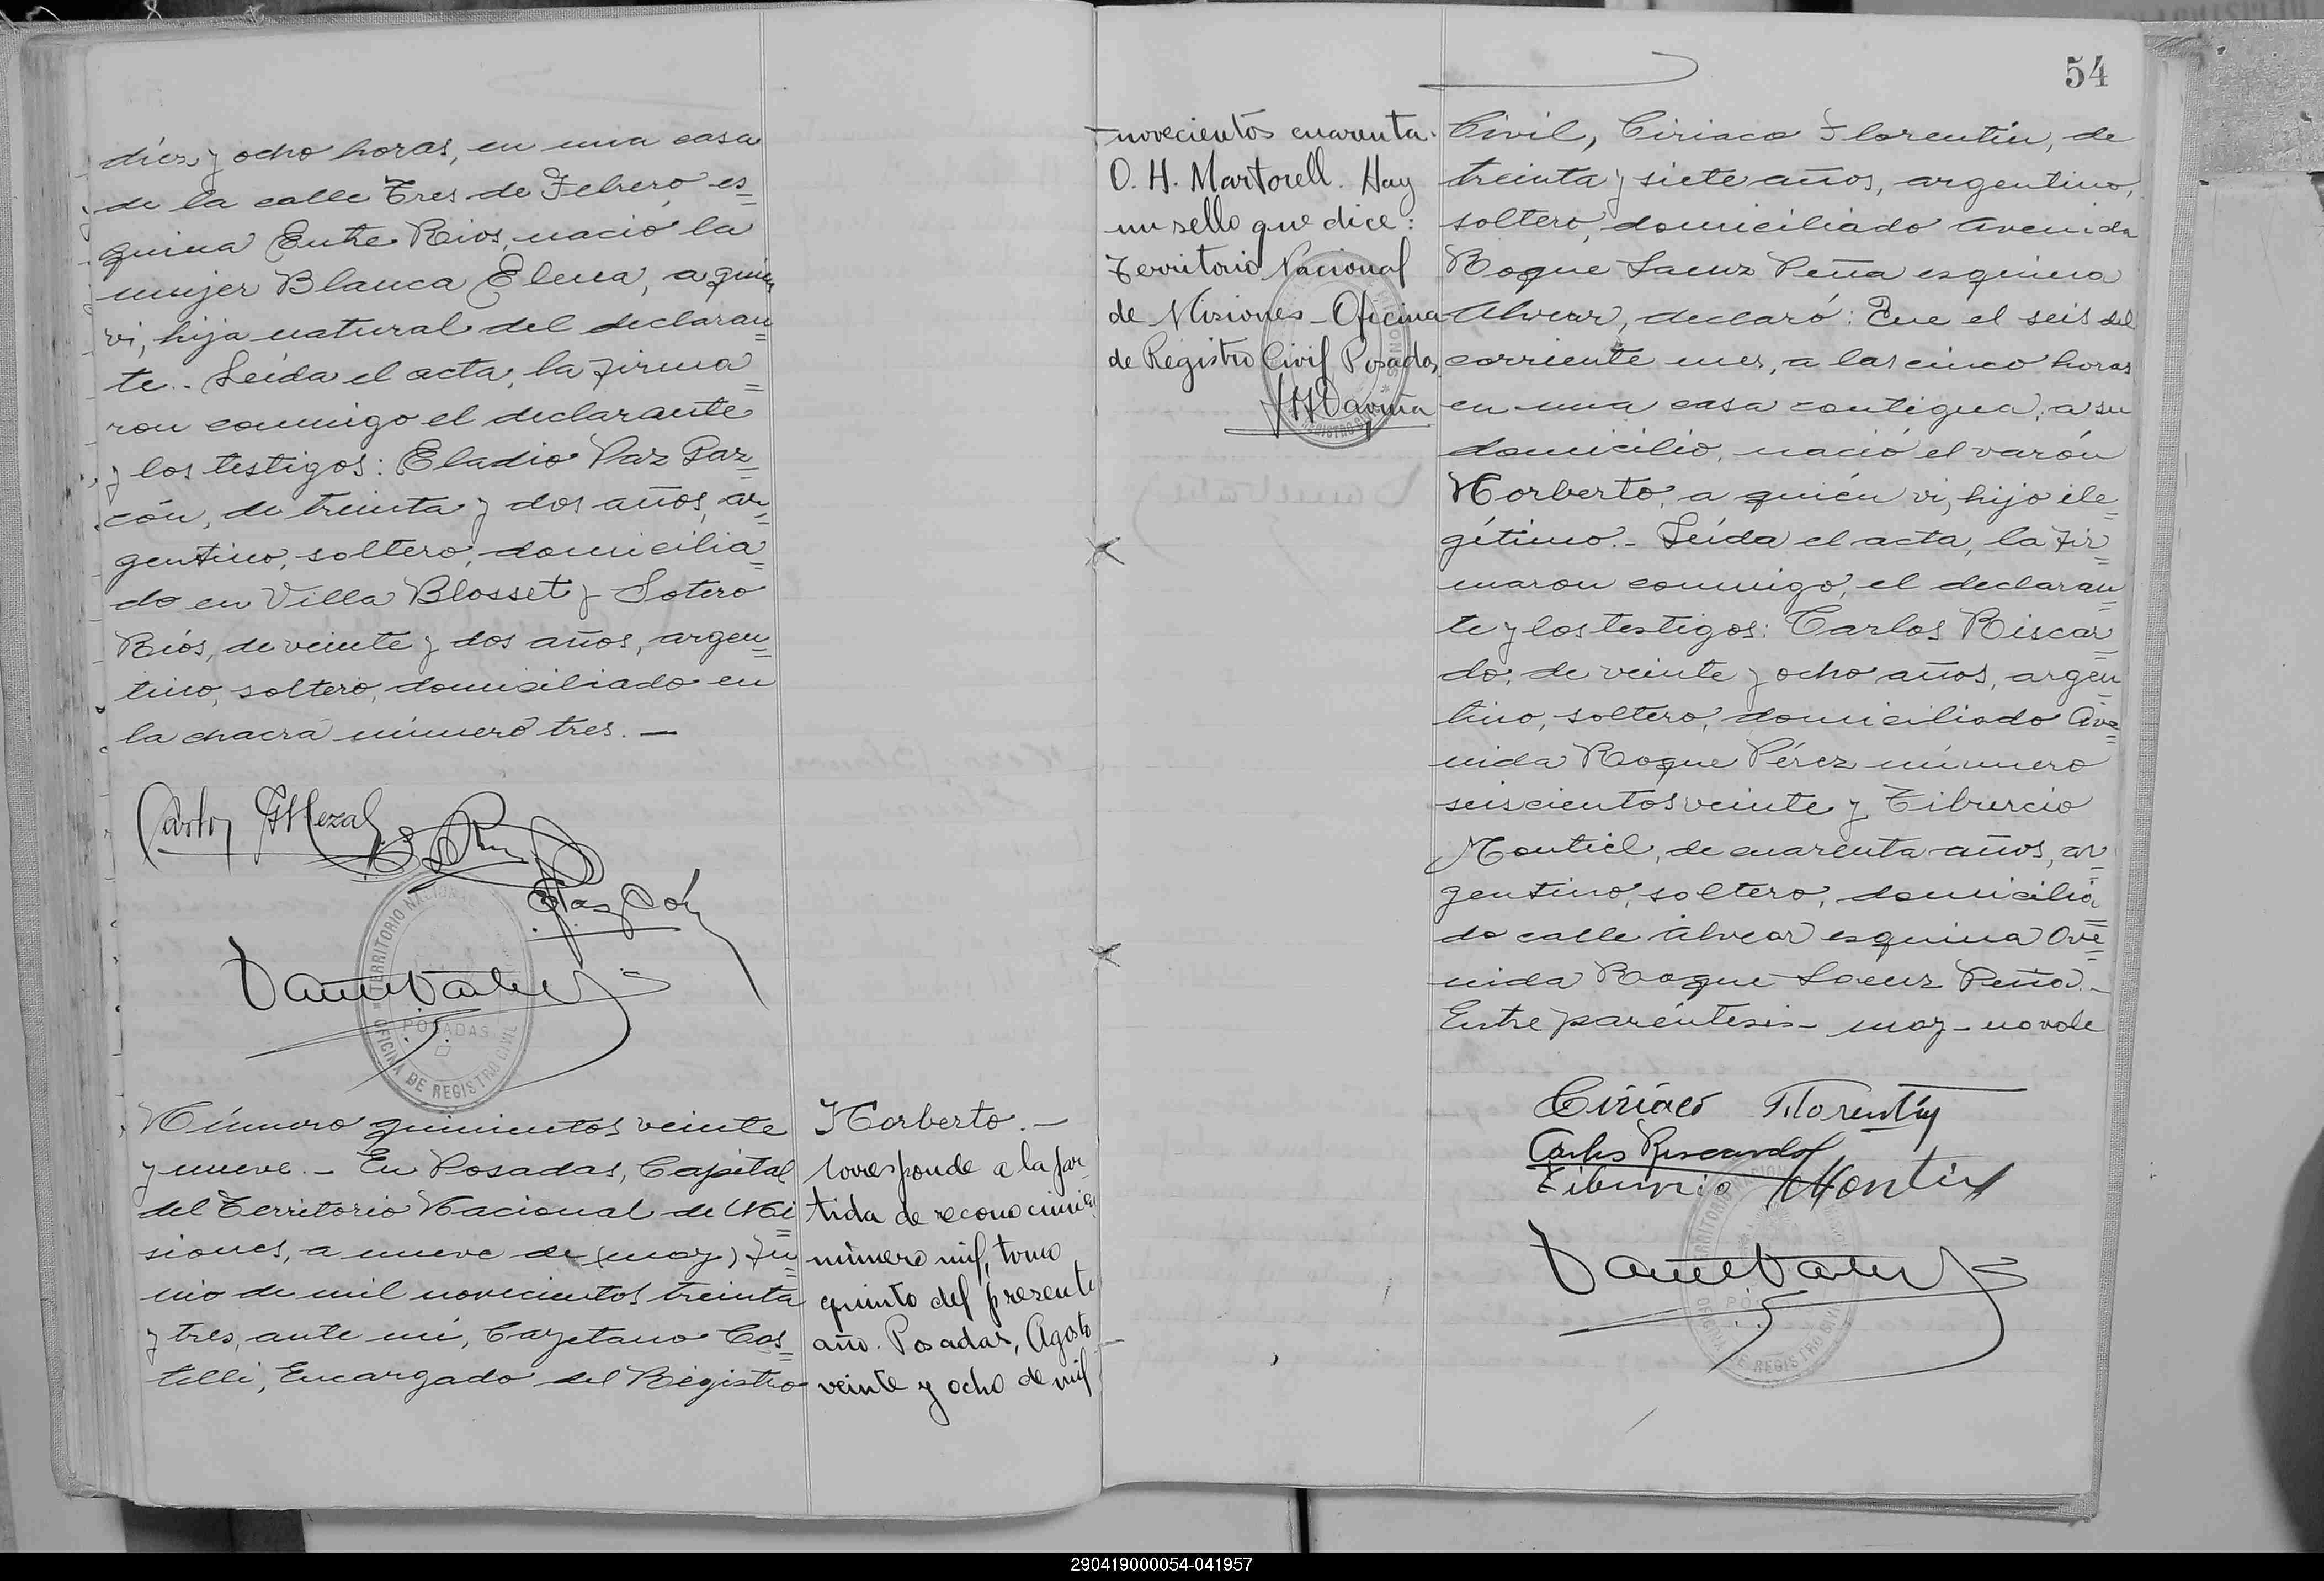 diez y ocho horas, en una casa
de la calle Tres de Febrero es=
quina Entre Rios, nació la
mujer Blanca Elena, a quien
vi, hija natural del declaran=
te.- Leída el acta, la firma=
ron conmigo el declarante
y los testigos: Eladio Paz Gar=
cón, de treinta y dos años, ar=
gentino, soltero, domicilia=
do en Villa Blosset y Sotero
Ríos, de veinte y dos años, argen=
tino, soltero, domiciliado en
la chacra número tres. —
TERRITORIO NACIONAL
POSADAS
OFICINA DE REGISTRO CIVIL
Número quinientos veinte
y nueve. - En Posadas, Capital
del Territorio Nacional de Mi=
siones, a nueve de (may) Ju=
nio de mil novecientos treinta
y tres, ante mí, Cayetano Cas=
telli, Encargado del Registro
Norberto. —
Corresponde a la par-
tida de reconocimien
número mil, tomo
quinto del presente
año. Posadas, Agosto
veinte y ocho de mil
novecientos cuarenta.
O. H. Martorell. Hay
un sello que dice:
Territorio Nacional
de Misiones - Oficina
de Registro Civil Posadas
54
Civil, Ciriaco Florentín, de
treinta y siete años, argentino,
soltero, domiciliado Avenida
Roque Saenz Peña esquina
Alvear, declaró: Que el seis del
corriente mes, a las cinco horas
en una casa contigua, a su
domicilio, nació el varón
Norberto, a quién vi, hijo ile=
gítimo. - Leída el acta, la fir=
maron conmigo, el declaran=
te y los testigos: Carlos Riscar=
do, de veinte y ocho años, argen=
tino, soltero, domiciliado Ave=
nida Roque Pérez número
seiscientos veinte y Tiburcio
Montiel, de cuarenta años, ar=
gentino, soltero, domicilia=
do calle Alvear esquina Ave=
nida Roque Saenz Peña. -
Entre paréntesis - may - no vale
Ciriaco Florentín
Carlos Riscardo
Tiburcio Montiel
290419000054-041957